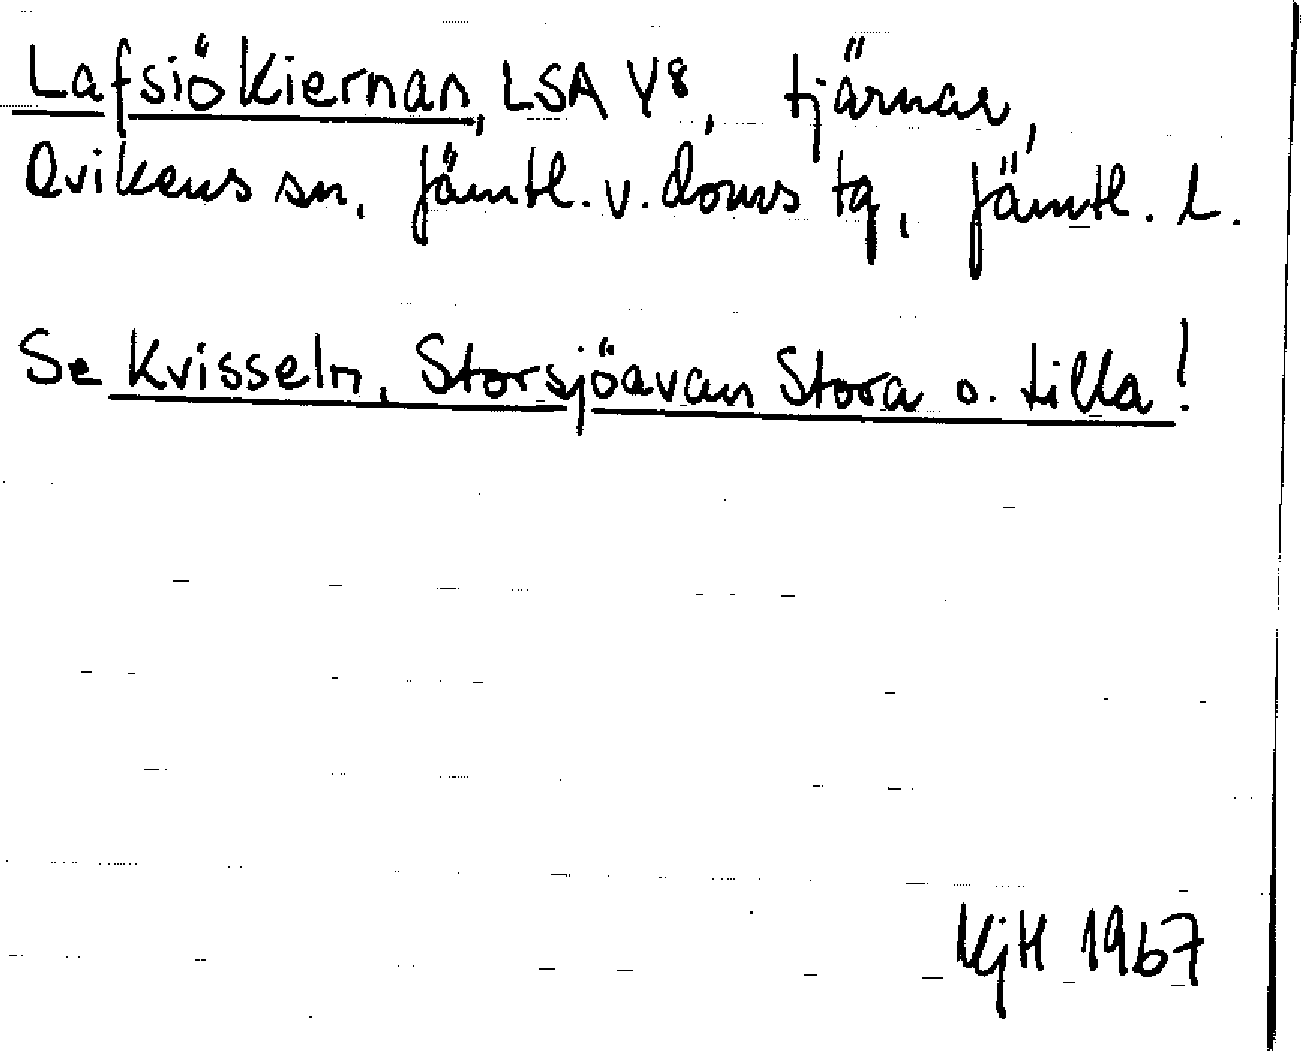 Lafsiö Kiernan, LSA Y8, tjärnar,
Ovikens sn, Jämtl. v. doms tg, Jämtl. l.
Se Kvisseln, Storsjöavan Stora o. Lilla!
KjH 1967